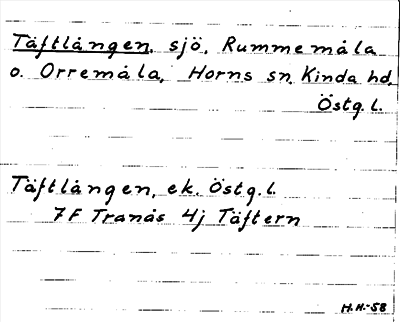 Täftlången, sjö, Rummemåla
o. Orremåla, Horns sn, Kinda hd,
Östg. l.
Täftlången, ek. Östg. l.
7F Tranås 4j Täftern
H.H.-58